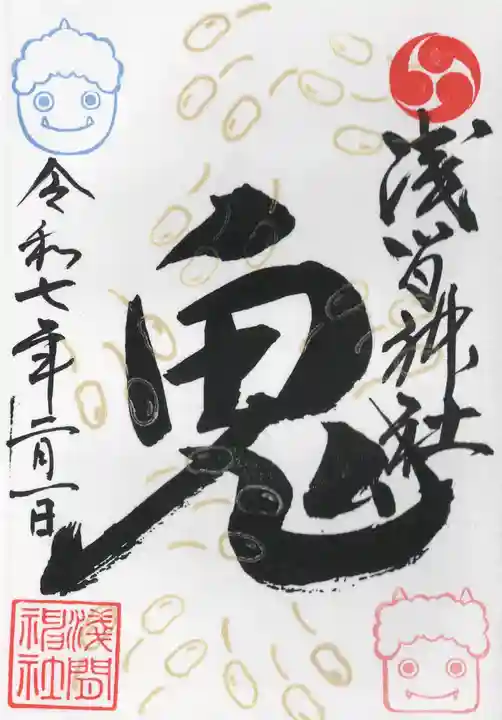 浅間神社
鬼
令和七年二月一日
浅間神社